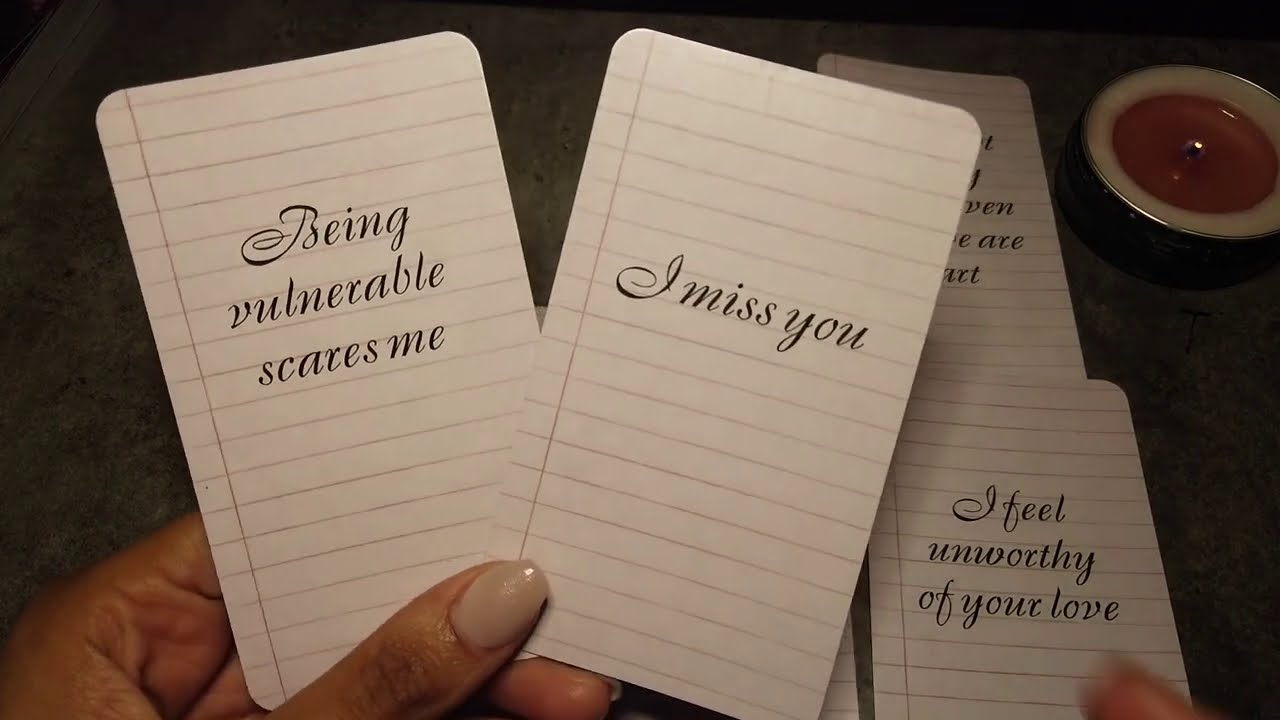 Being
vulnerable
scares me
I miss you
ven
e are
art
I feel
unworthy
of your love